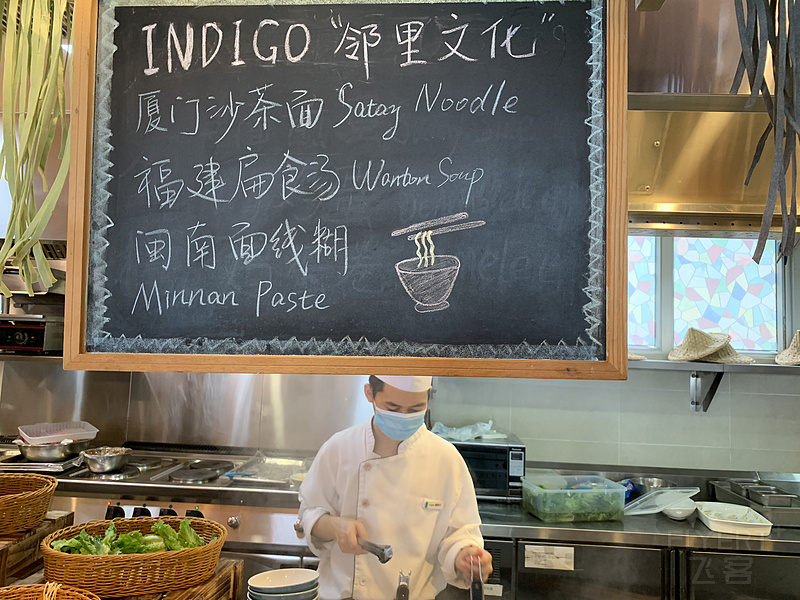 INDIGO "邻里文化"
厦门沙茶面 Satay Noodle
福建扁食汤 Wanton Soup
闽南面线糊
Minnan Paste
飞客